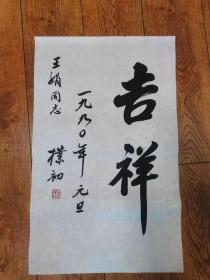 吉祥
王娟同志
一九九〇年元旦
樸初